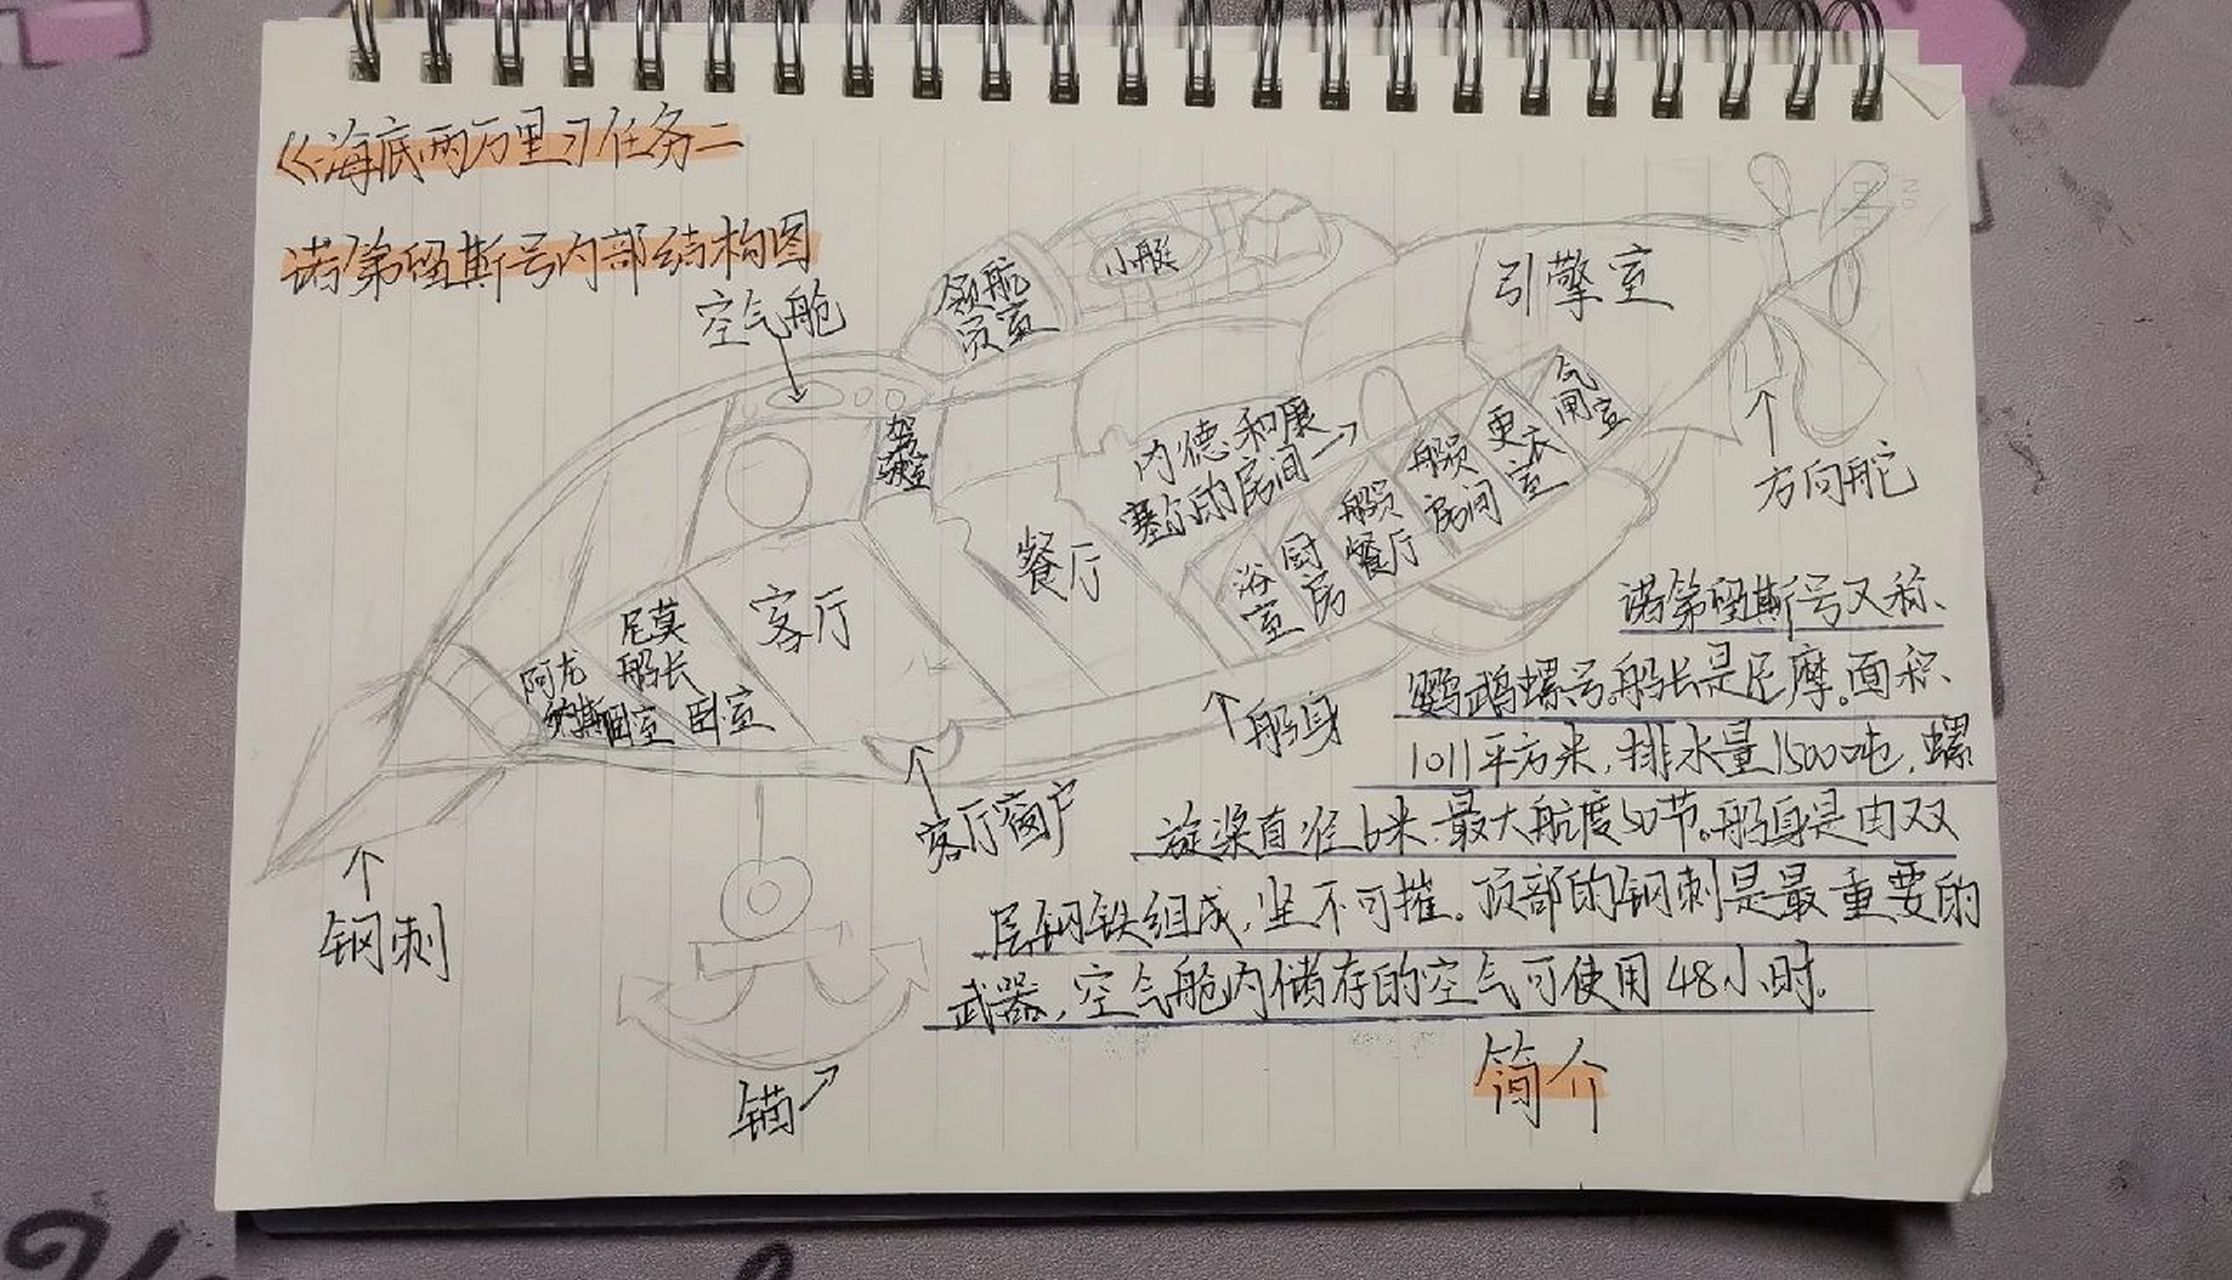 《海底两万里》任务二
诺第留斯号内部结构图
空气舱
领航
员室
小艇
引擎室
驾
驶室
内德和康
塞尔的房间
气
闸室
更衣
室
船员
房间
船员
餐厅
厨
房
浴
室
餐厅
客厅
尼莫
船长
卧室
阿龙
纳斯卧室
方向舵
船身
客厅窗户
钢刺
锚
诺第留斯号又称、
鹦鹉螺号。船长是尼摩。面积、
1011平方米,排水量1500吨,螺
旋桨直径6米.最大航度50节。船身是由双
层钢铁组成,坚不可摧。顶部的钢刺是最重要的
武器,空气舱内储存的空气可使用48小时。
简介